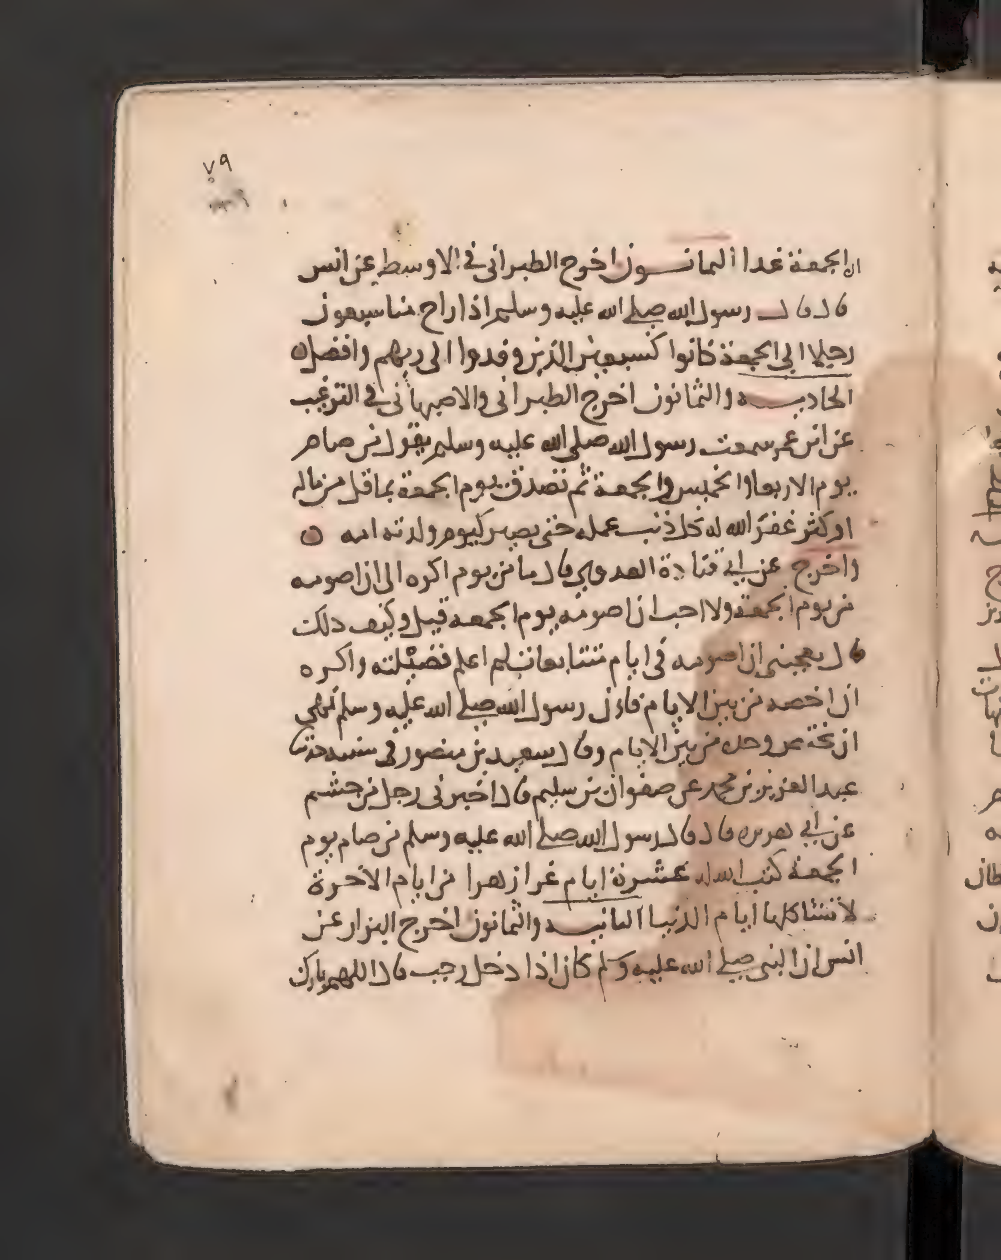 ٧٩
ان الجمعة غدا الثمانون اخرج الطبراني في الاوسط عن انس
قال قال رسول الله صلى الله عليه وسلم اذا راح منا سبعون
رجلا الى الجمعة كانوا كسبعين الذين وفدوا الى ربهم وافضل ه
الحاديه والثمانون اخرج الطبراني والاصبهاني في الترغيب
عن ابن عمر سمعت رسول الله صلى الله عليه وسلم يقول من صام
يوم الاربعا والخميس والجمعة ثم تصدق يوم الجمعة بما قل من ماله
او كثر غفر الله له كل ذنب عمله حتى يصير كيوم ولدته امه ه
واخرج عن ابي قتادة العدوي قال ما من يوم اكره الى ان اصومه
من يوم الجمعة ولا احب ان اصومه يوم الجمعة قيل وكيف ذلك
قال يعجبني ان اصومه في ايام متتابعات لما اعلم فضيلته واكره
ان اخصه من بين الايام فان رسول الله صلى الله عليه وسلم نهى
ان يختص وحده من بين الايام وقال سعيد بن منصور في سننه حدثنا
عبد العزيز بن محمد عن صفوان بن سليم قال اخبرني رجل من جشم
عن ابي هريرة قال قال رسول الله صلى الله عليه وسلم من صام يوم
الجمعة كتب الله له عشرة ايام غرا زهرا من ايام الاخرة
لا تشاكلها ايام الدنيا الثانيه والثمانون اخرج البزار عن
انس ان النبي صلى الله عليه وسلم كان اذا دخل رجب قال اللهم بارك